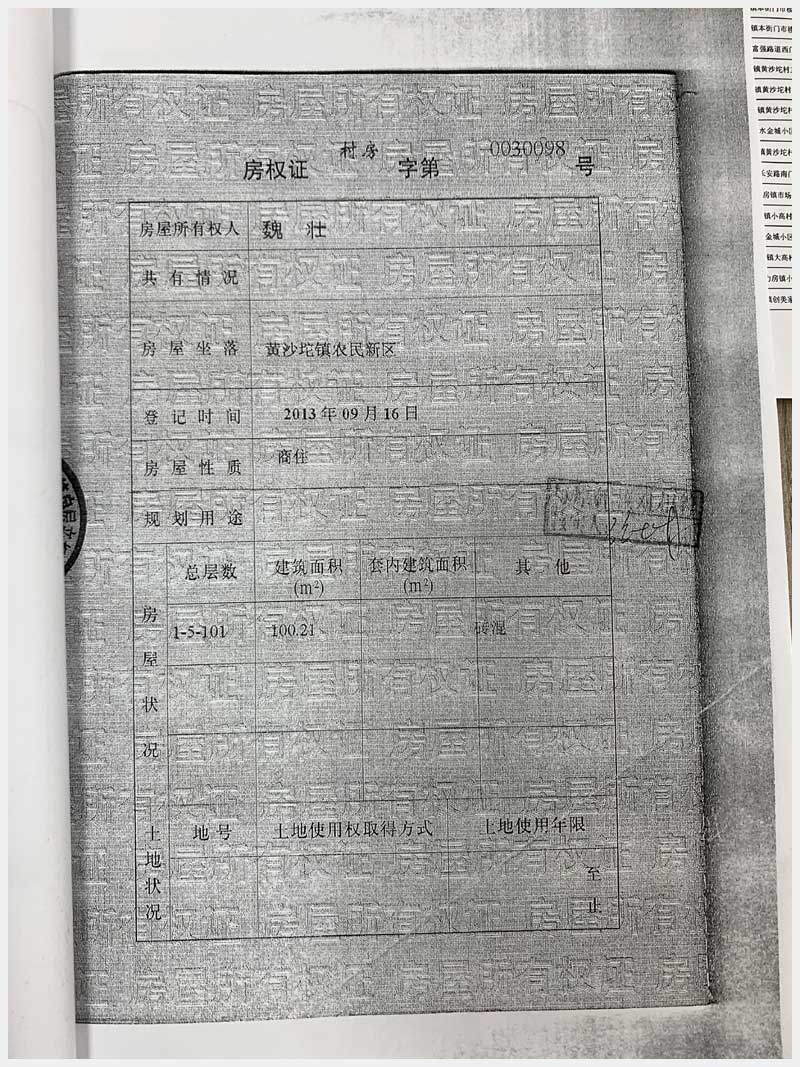 房权证 村房 字第 0030098 号
房屋所有权人 魏壮
共有情况
房屋坐落 黄沙坨镇农民新区
登记时间 2013年09月16日
房屋性质 商住
规划用途
房屋状况
总层数 建筑面积(m²) 套内建筑面积(m²) 其他
1-5-101 100.21 砖混
土地状况
地号 土地使用权取得方式 土地使用年限
至
止
镇本街门市楼
富强路道西门
镇黄沙坨村
镇黄沙坨村
镇黄沙坨
水金城小区
镇黄沙坨村
长安路南门
房镇市场
镇小高村
金城小区
镇大高村
房镇小